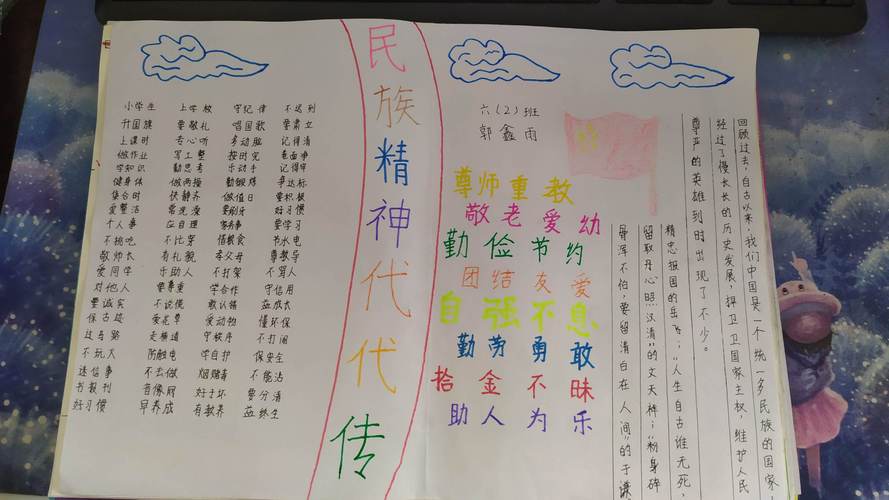 民族精神代代传
小学生 上学校 守纪律 不迟到
升国旗 要敬礼 唱国歌 要肃立
上课时 专心听 多动脑 记得清
做作业 写工整 按时完 卷面净
学知识 勤思考 乐动手 记得牢
健身体 做两操 勤锻炼 争达标
集合时 快静齐 做值日 要积极
爱整洁 常洗澡 要刷牙 好习惯
个人事 应自理 家务事 要学习
不挑吃 不比穿 惜粮食 节水电
敬师长 有礼貌 孝父母 尊教导
爱同学 乐助人 不打架 不骂人
对他人 要尊重 学合作 守信用
要诚实 不说谎 敢认错 益成长
保古迹 爱花草 爱动物 懂环保
过马路 走横道 守秩序 不打闹
不玩火 防触电 学自护 保安全
迷信事 不去做 烟赌毒 不能沾
书报刊 音像厨 好于坏 要分清
好习惯 早养成 有教养 益终生
六(2)班
郭鑫雨
尊师重教
敬老爱幼
勤俭节约
团结友爱
自强不息
勤劳勇敢
拾金不昧
助人为乐
回顾过去,自古以来,我们中国是一个统一多民族的国家
经过了慢长长的历史发展,捍卫卫国家主权,维护人民
尊严的英雄到时出现了不少。
精忠报国的岳飞;"人生自古谁无死,
留取丹心照汉清"的文天祥;"粉身碎
骨浑不怕,要留清白在人间"的于谦